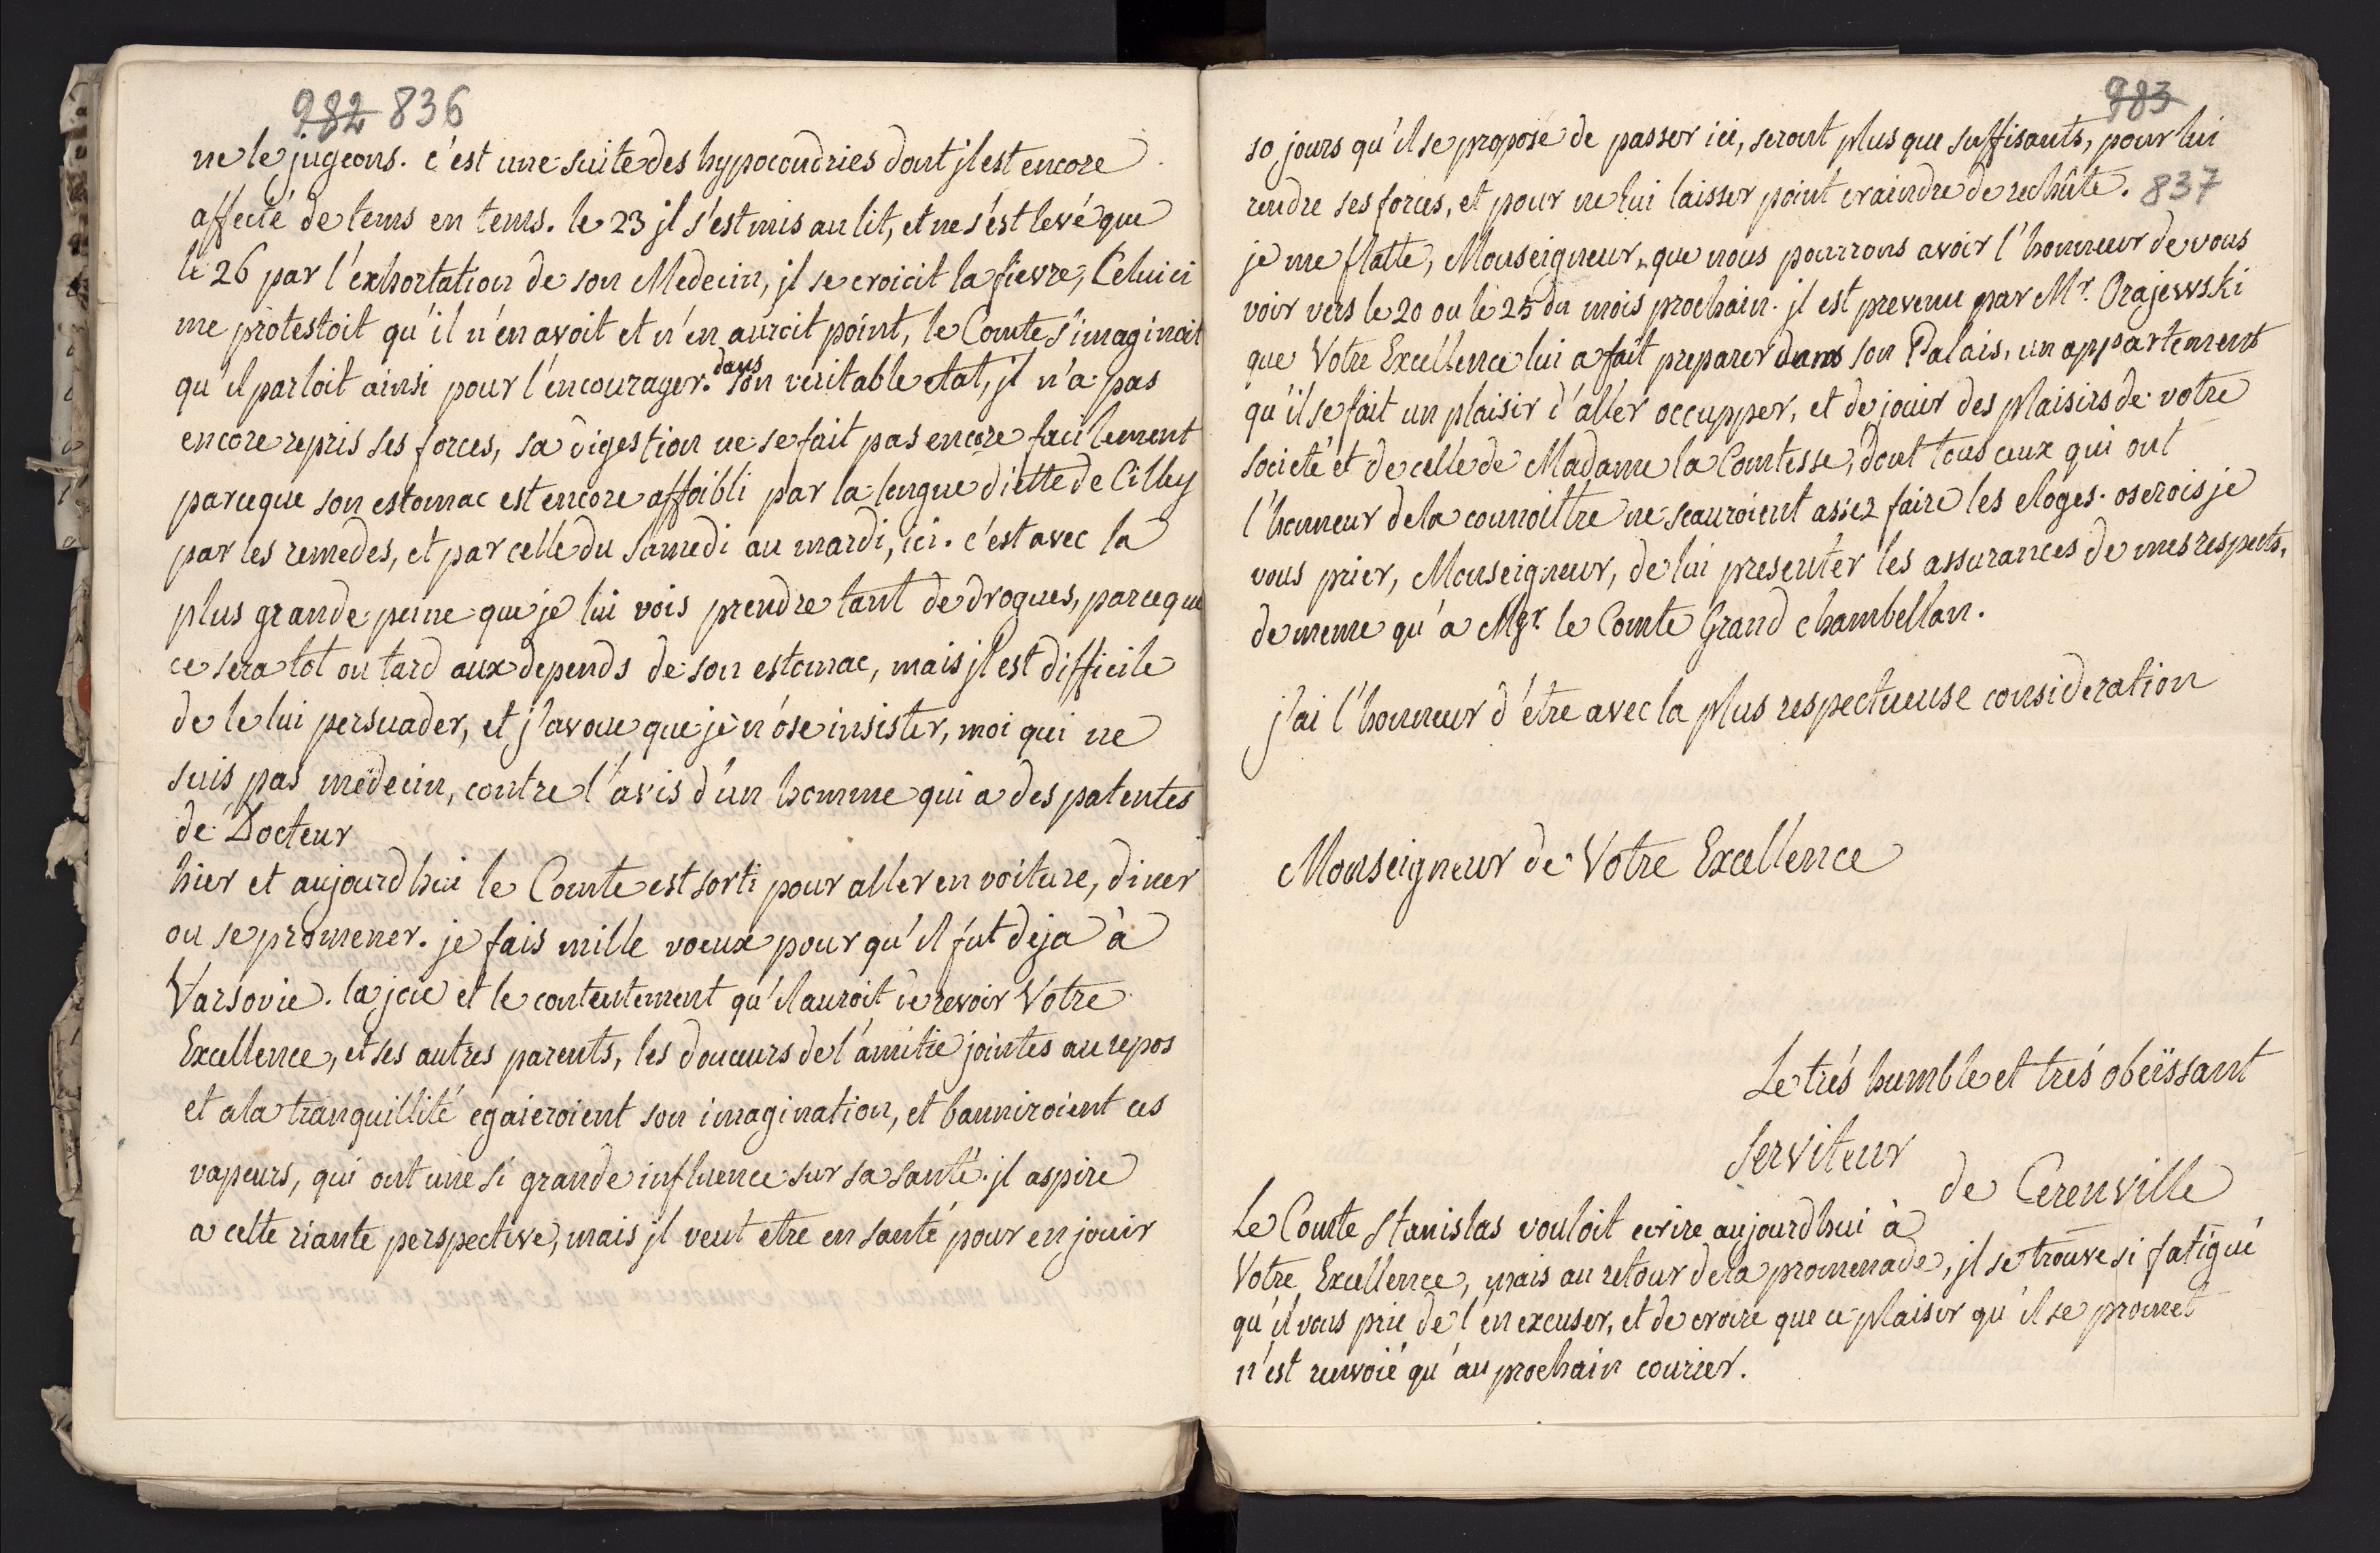 982 836
ne le jugeons. c'est une suite des hypocondries dont jl est encore
affecté de tems en tems. le 23 jl s'est mis au lit, et ne s'est levé que
le 26 par l'exhortation de son Medecin, jl se croioit la fievre, Celui ci
me protestoit qu'il n'en avoit et n'en auroit point, le Comte s'imaginoit
qu'il parloit ainsi pour l'encourager. dans son veritable etat, jl n'a pas
encore repris ses forces, sa digestion ne se fait pas encore facilement
parceque son estomac est encore affoibli par la longue diette de Cilley
par les remedes, et par celle du Samedi au mardi, ici. c'est avec la
plus grande peine que je lui vois prendre tant de drogues, parceque
ce sera tot ou tard aux depends de son estomac, mais jl est difficile
de le lui persuader, et j'avoue que je n'ose insister, moi qui ne
suis pas medecin, contre l'avis d'un homme qui a des patentes
de Docteur
hier et aujourdhui le Comte est sorti pour aller en voiture, diner
ou se promener. je fais mille voeux pour qu'il fut deja à
Varsovie. la joie et le contentement qu'il auroit de revoir Votre
Excellence, et ses autres parents, les douceurs de l'amitie jointes au repos
et a la tranquillité egaieroient son imagination, et banniroient ces
vapeurs, qui ont une si grande influence sur sa santé. jl aspire
a cette riante perspective, mais jl veut etre en santé pour en jouir
983
10 jours qu'il se propose de passer ici, seront plus que suffisants, pour lui
rendre ses forces, et pour ne lui laisser point craindre de rechûte. 837
je me flatte, Monseigneur, que nous pourrons avoir l'honneur de vous
voir vers le 20 ou le 25 du mois prochain. jl est prevenu par Mr. Orajewski
que Votre Excellence lui a fait preparer dans son Palais, un appartement
qu'il se fait un plaisir d'aller occupper, et de jouir des plaisirs de votre
societé et de celle de Madame la Comtesse, dont tous ceux qui ont
l'honneur de la connoittre ne scauroient assez faire les eloges. oserois je
vous prier, Monseigneur, de lui presenter les assurances de mes respects,
de meme qu'a Mgr. le Comte Grand chambellan.
j'ai l'honneur d'être avec la plus respectueuse consideration
Monseigneur de Votre Excellence
Le trés humble et trés obeïssant
Serviteur
de Cerenville
Le Comte Stanislas vouloit ecrire aujourdhui à
Votre Excellence, mais au retour de la promenade, jl se trouve si fatigué
qu'il vous prie de l'en excuser, et de croire que ce plaisir qu'il se promet
n'est renvoié qu'au prochain courier.